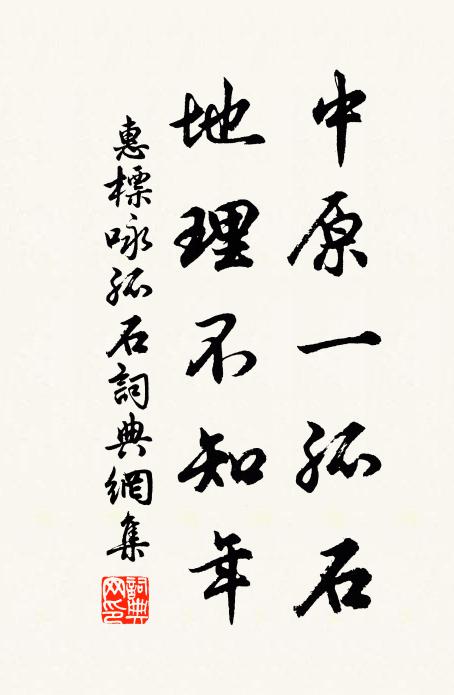 中原一孤石
地理不知年
惠標咏孤石詞典網集
詞典
网印